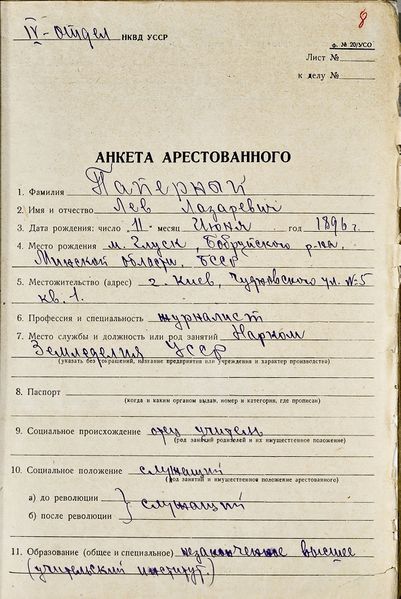 8
IV-отдел НКВД УССР
ф. № 20/УСО
Лист №
к делу №
АНКЕТА АРЕСТОВАННОГО
1. Фамилия Паперный
2. Имя и отчество Лев Лазаревич
3. Дата рождения: число 11 месяц Июня год 1896 г.
4. Место рождения м. Глуск, Бобруйского р-на,
Минской области, БССР
5. Местожительство (адрес) г. Киев, ул. №5
кв. 1.
6. Профессия и специальность журналист
7. Место службы и должность или род занятий Нарком
Земледелия УССР
(указать без сокращений, название предприятия или учреждения и характер производства)
8. Паспорт
(когда и каким органом выдан, номер и категория, где прописан)
9. Социальное происхождение отец учитель
(род занятий родителей и их имущественное положение)
10. Социальное положение служащий
(род занятий и имущественное положение арестованного)
а) до революции } служащий
б) после революции
11. Образование (общее и специальное) незаконченное высшее
(учительский институт.)